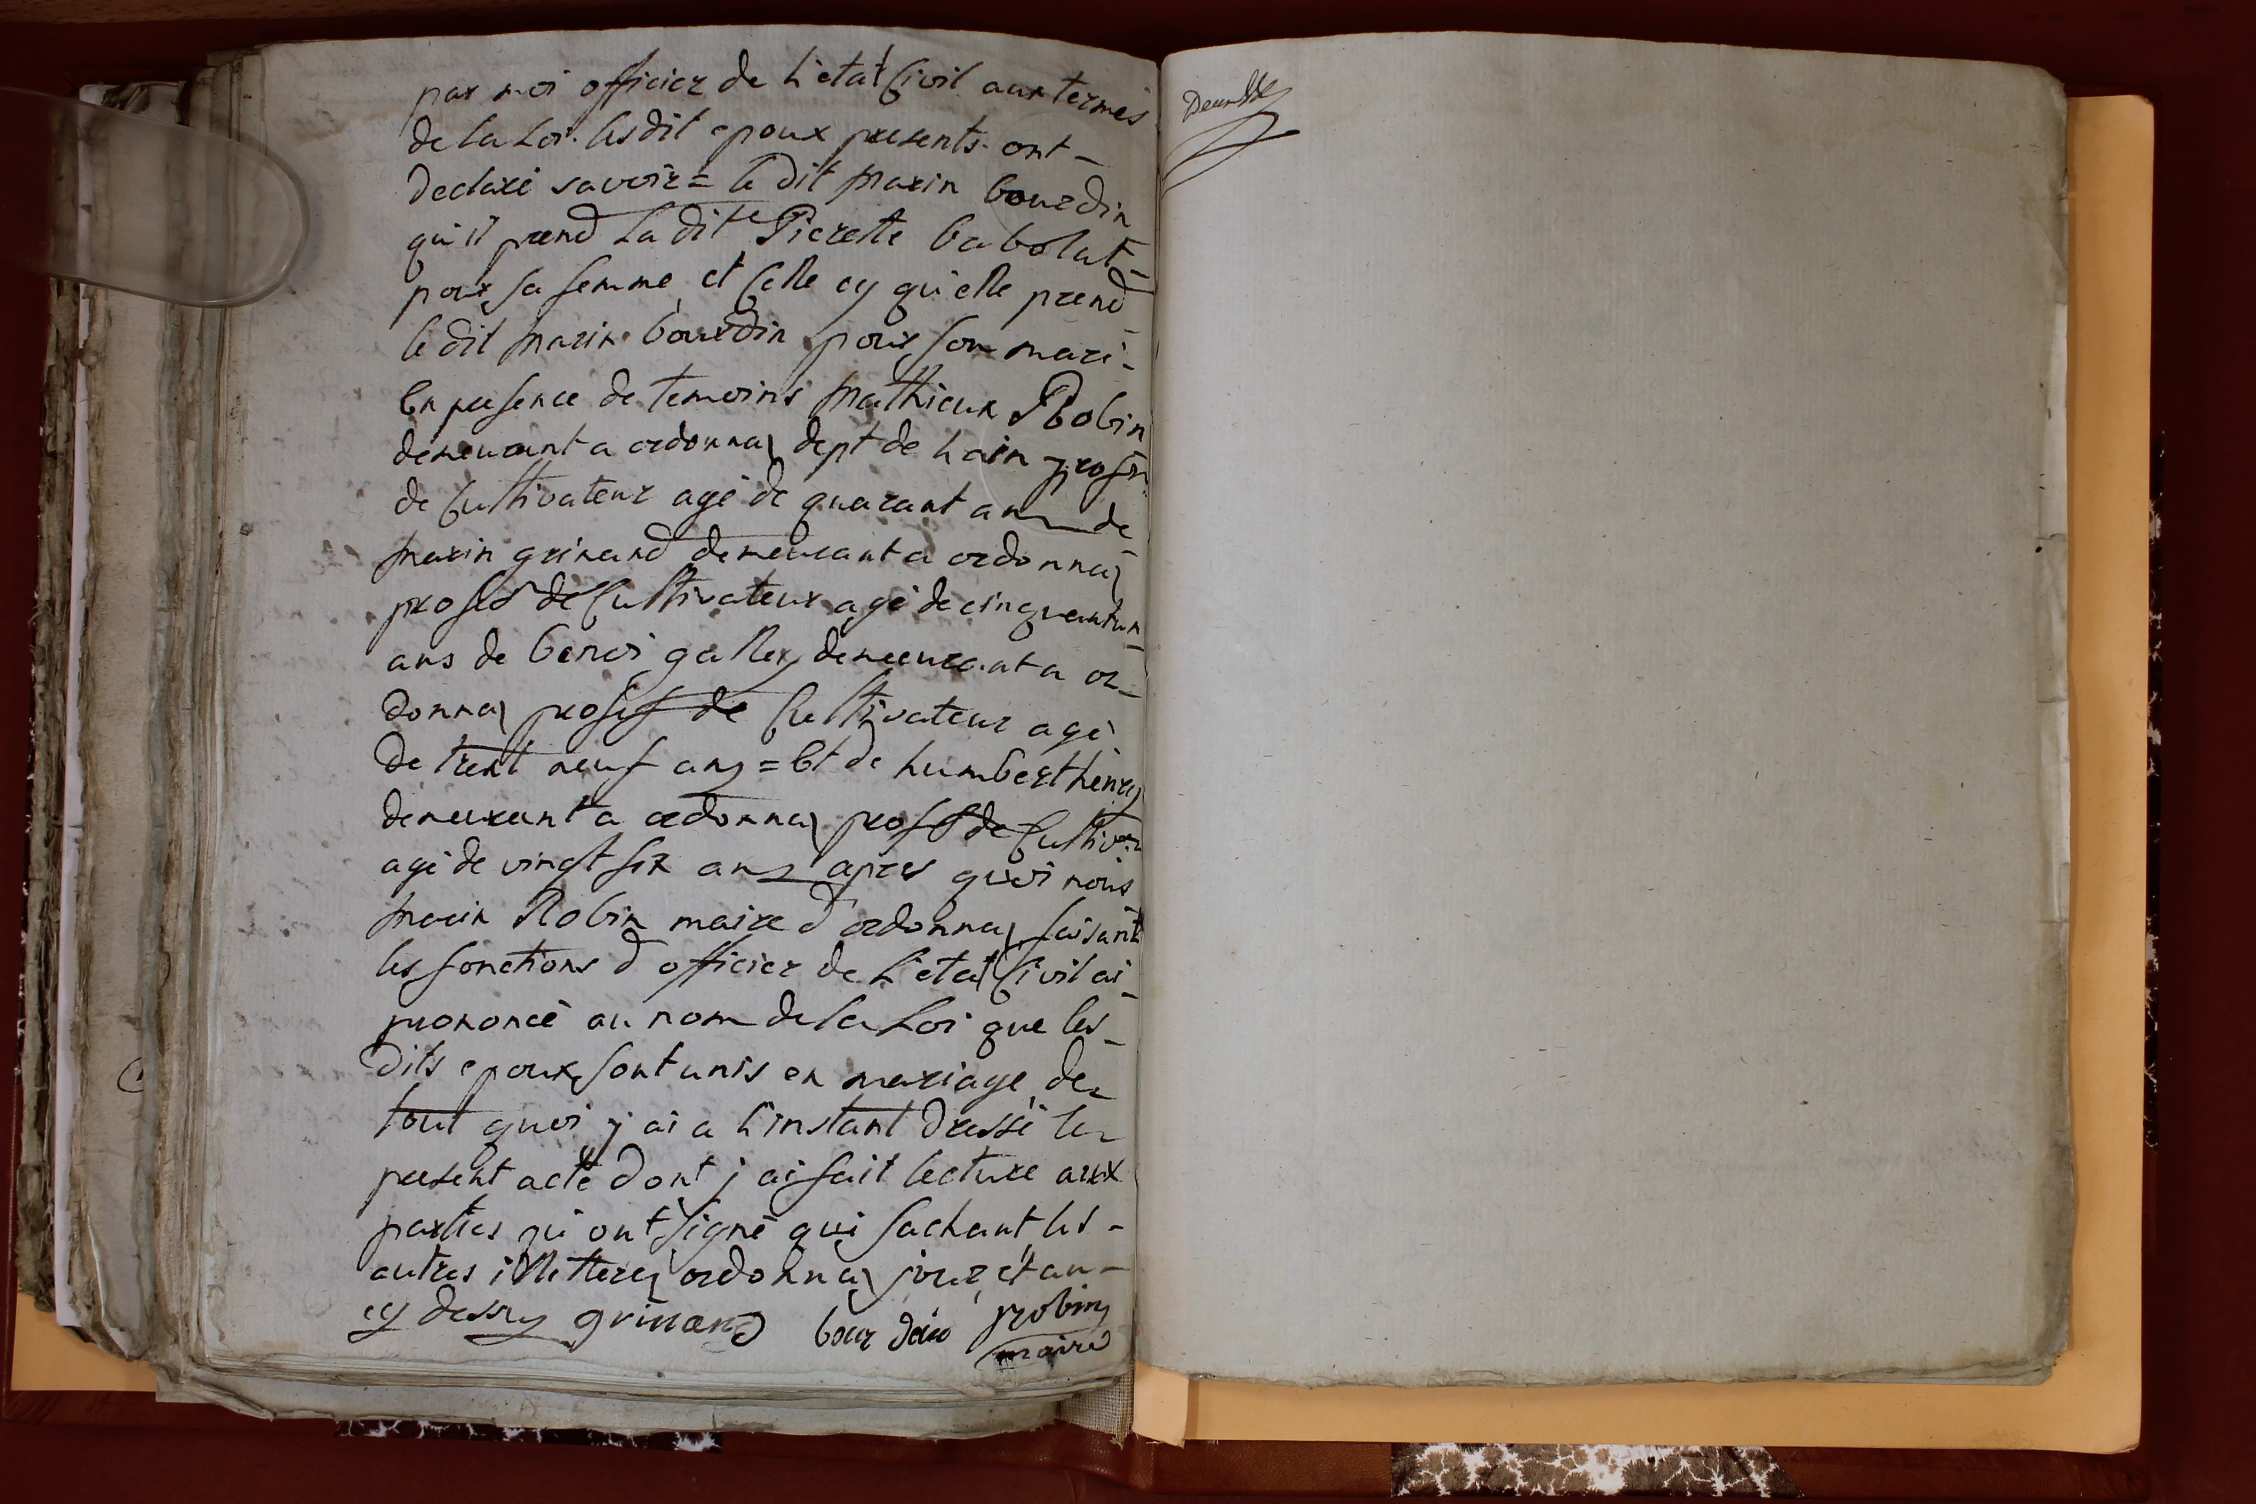 par moi officier de L'etat Civil aux termes
de la Loi. lesdit epoux presents ont -
declaré savoir = le dit marin bourdin
qu'il prend La dite Pierette babolat -
pour sa femme et Celle cy qu'elle prend
le dit marin bourdin pour son mari -
En presence de temoins mathieux Robin
demeurant a ordonna dept de Lain profn.
de Cultivateur agé de quarant ans de
marin grinand demeurant a ordonna
profes de Cultivateur agé de cinquantun -
ans de benoi gallery demeurant a or-
donna profes de Cultivateur agé
De trent neuf ans = Et de humbert henry
demeurant a ordonna profes de Cultivr
agé de vingt six ans apres quoi nous
marin Robin maire d'ordonna faisant
les fonctions d officier de L'etat Civil ai -
prononcé au nom de la Loi que les -
Dits epoux sont unis en mariage de
tout quoi j ai a L'instant Dressé le
present acte dont j ai fait lecture aux
parties qi ont signé qui sachant les -
autres illettere ordonna jour et an -
cy dessus grinand bourdein Robin
maire